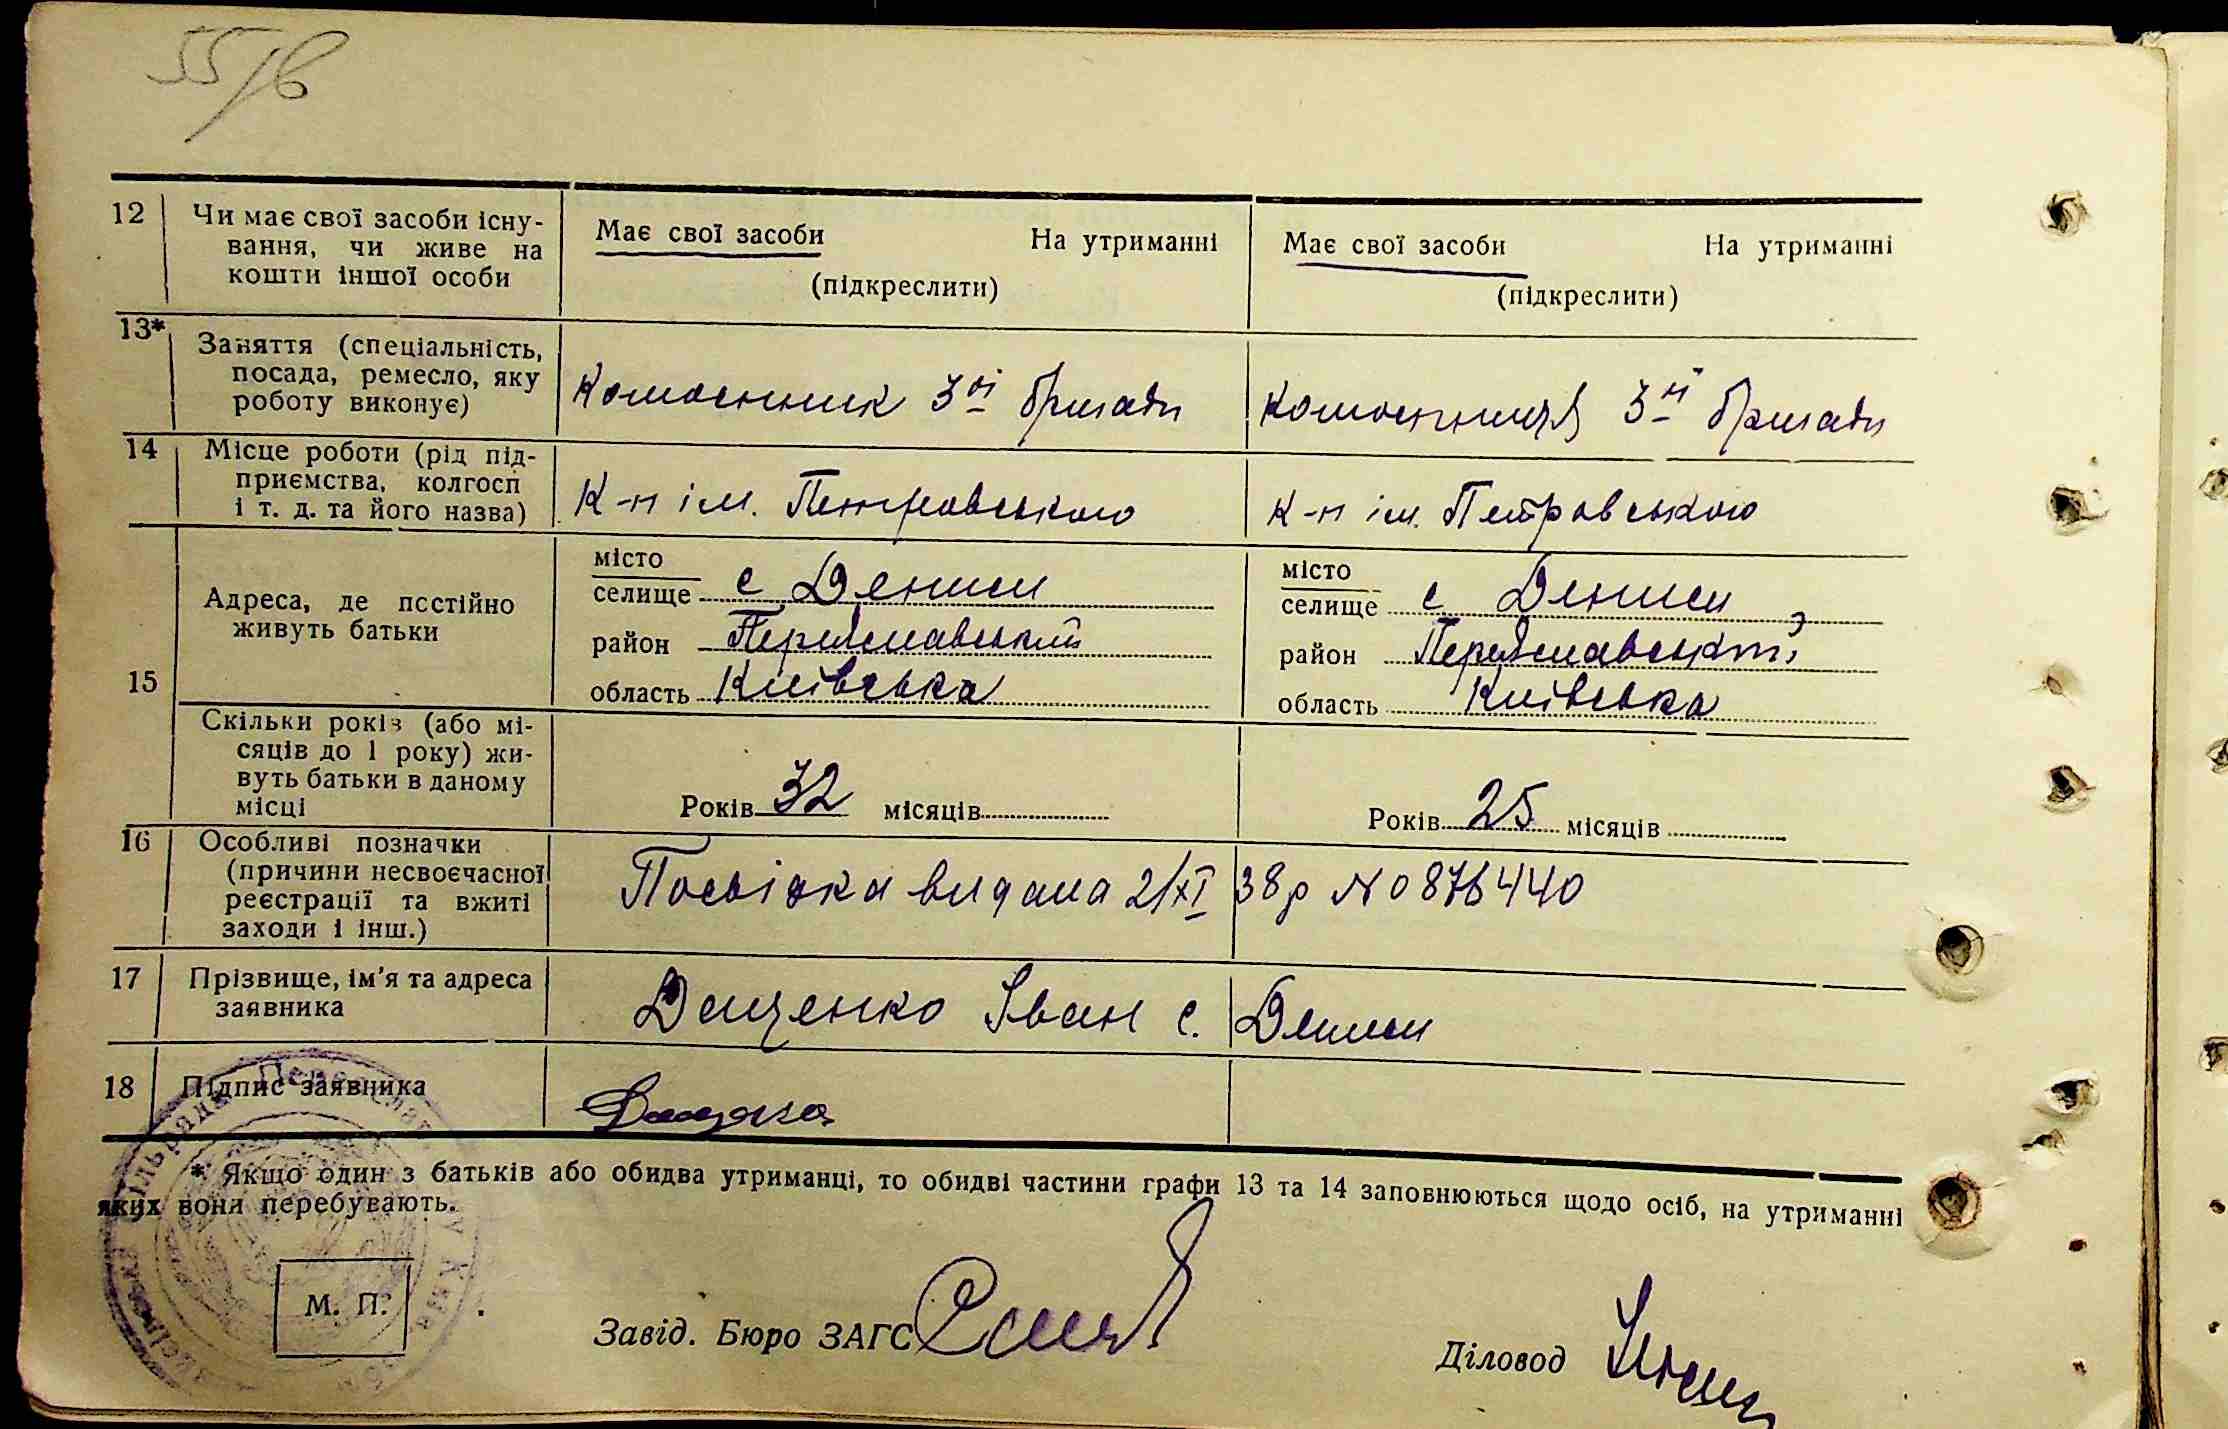 55/в
12 Чи має свої засоби існу-
вання, чи живе на
кошти іншої особи
Має свої засоби На утриманні
(підкреслити)
Має свої засоби На утриманні
(підкреслити)
13* Заняття (спеціальність,
посада, ремесло, яку
роботу виконує)
3ої бригади
3ї бригади
14 Місце роботи (рід під-
приємства, колгосп
і т. д. та його назва)
К-п ім. Петровського
К-п ім. Петровського
15 Адреса, де постійно
живуть батьки
місто
селище с Дениси
район Переяславський
область Київська
місто
селище с Дениси
район Переяславський
область Київська
Скільки років (або мі-
сяців до 1 року) жи-
вуть батьки в даному
місці
Років 32 місяців
Років 25 місяців
16 Особливі позначки
(причини несвоєчасної
реєстрації та вжиті
заходи і інш.)
Посвідка видана 2/XI 38р № 0876440
17 Прізвище, ім'я та адреса
заявника
Дощенко Іван с. Дениси
18 Підпис заявника
* Якщо один з батьків або обидва утриманці, то обидві частини графи 13 та 14 заповнюються щодо осіб, на утриманні
яких вони перебувають.
М. П.
Завід. Бюро ЗАГС
Діловод